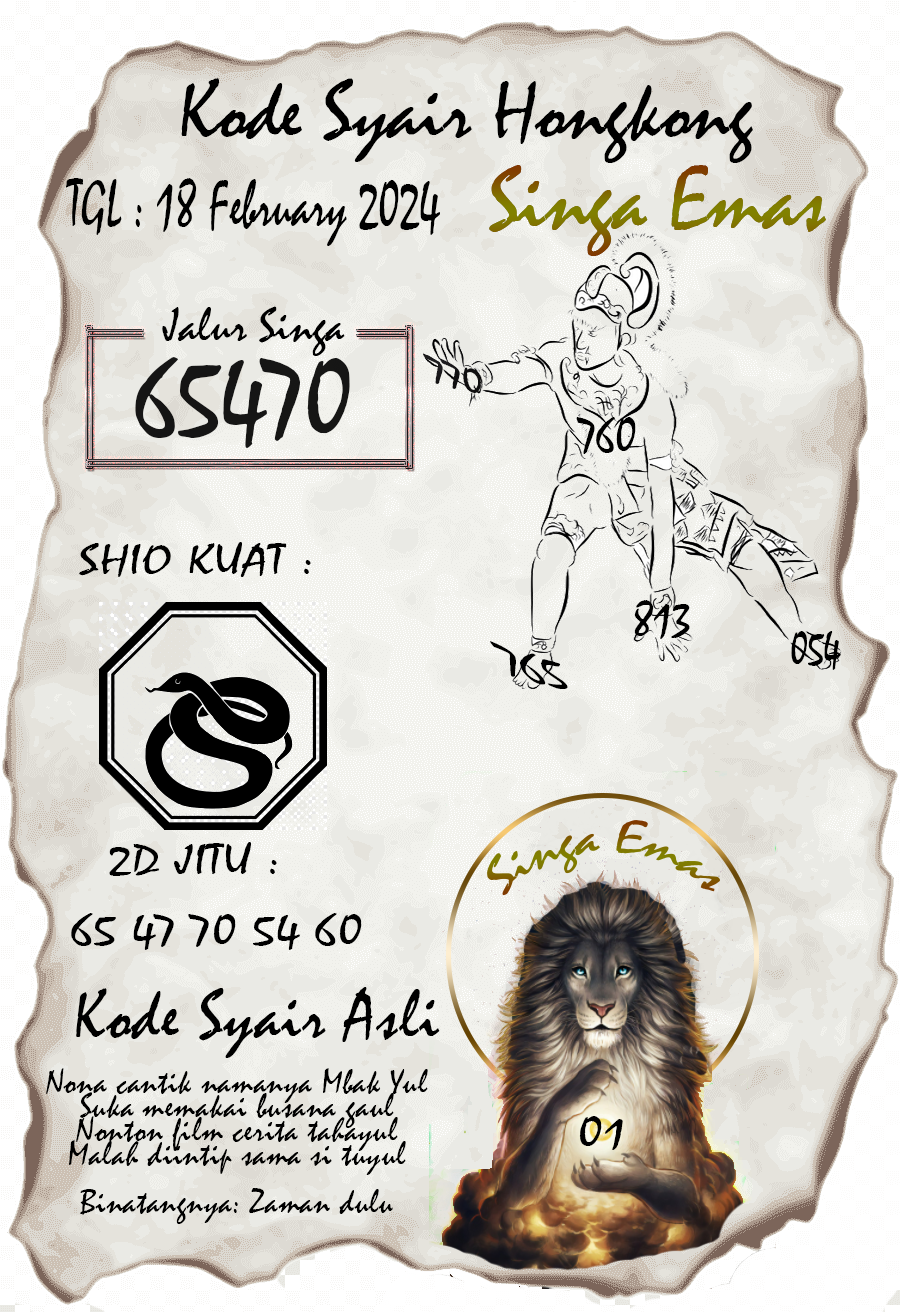 Kode Syair Hongkong
TGL : 18 February 2024
Singa Emas
Jalur Singa
65470
770
760
813
765
054
SHIO KUAT :
2D JITU :
65 47 70 54 60
Singa Emas
01
Kode Syair Asli
Nona cantik namanya Mbak Yul
Suka memakai busana gaul
Nonton film cerita tahayul
Malah diintip sama si tuyul
Binatangnya: Zaman dulu